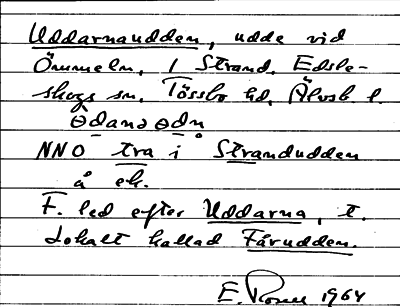 Uddarnaudden, udde vid
Ömmeln, 1 Strand, Edsle-
skogs sn, Tössbo hd, Älvsb. l.
NNO tra i Strandudden
å ek.
F. led efter Uddarna, t.
Lokalt kallad Fårudden.
E. 1964